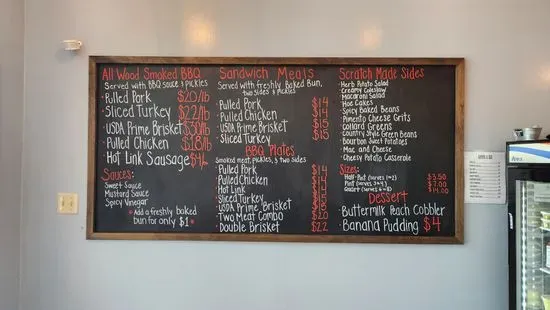 All Wood Smoked BBQ
Served with BBQ sauce & pickles
Pulled Pork $20/lb
Sliced Turkey $22/lb
USDA Prime Brisket $30/lb
Pulled Chicken $18/lb
Hot Link Sausage $4
Sauces:
Sweet Sauce
Mustard Sauce
Spicy Vinegar
*Add a freshly baked
bun for only $1*
Sandwich Meals
Served with freshly Baked Bun,
two sides & pickles
Pulled Pork $14
Pulled Chicken $14
USDA Prime Brisket $15
Sliced Turkey $15
BBQ Plates
Smoked meat, pickles, & two sides
Pulled Pork
Pulled Chicken
Hot Link
Sliced Turkey
USDA Prime Brisket
Two Meat Combo $20
Double Brisket $22
Scratch Made Sides
Herb Potato Salad
Creamy Coleslaw
Macaroni Salad
Hoe Cakes
Spicy Baked Beans
Pimento Cheese Grits
Collard Greens
Country Style Green Beans
Bourbon Sweet Potatoes
Mac and Cheese
Cheesy Potato Casserole
Sizes:
Half-Pint (serves 1-2) $3.50
Pint (serves 3-4) $7.00
Quart (serves 6-8) $14.00
Dessert
Buttermilk Peach Cobbler
Banana Pudding $4